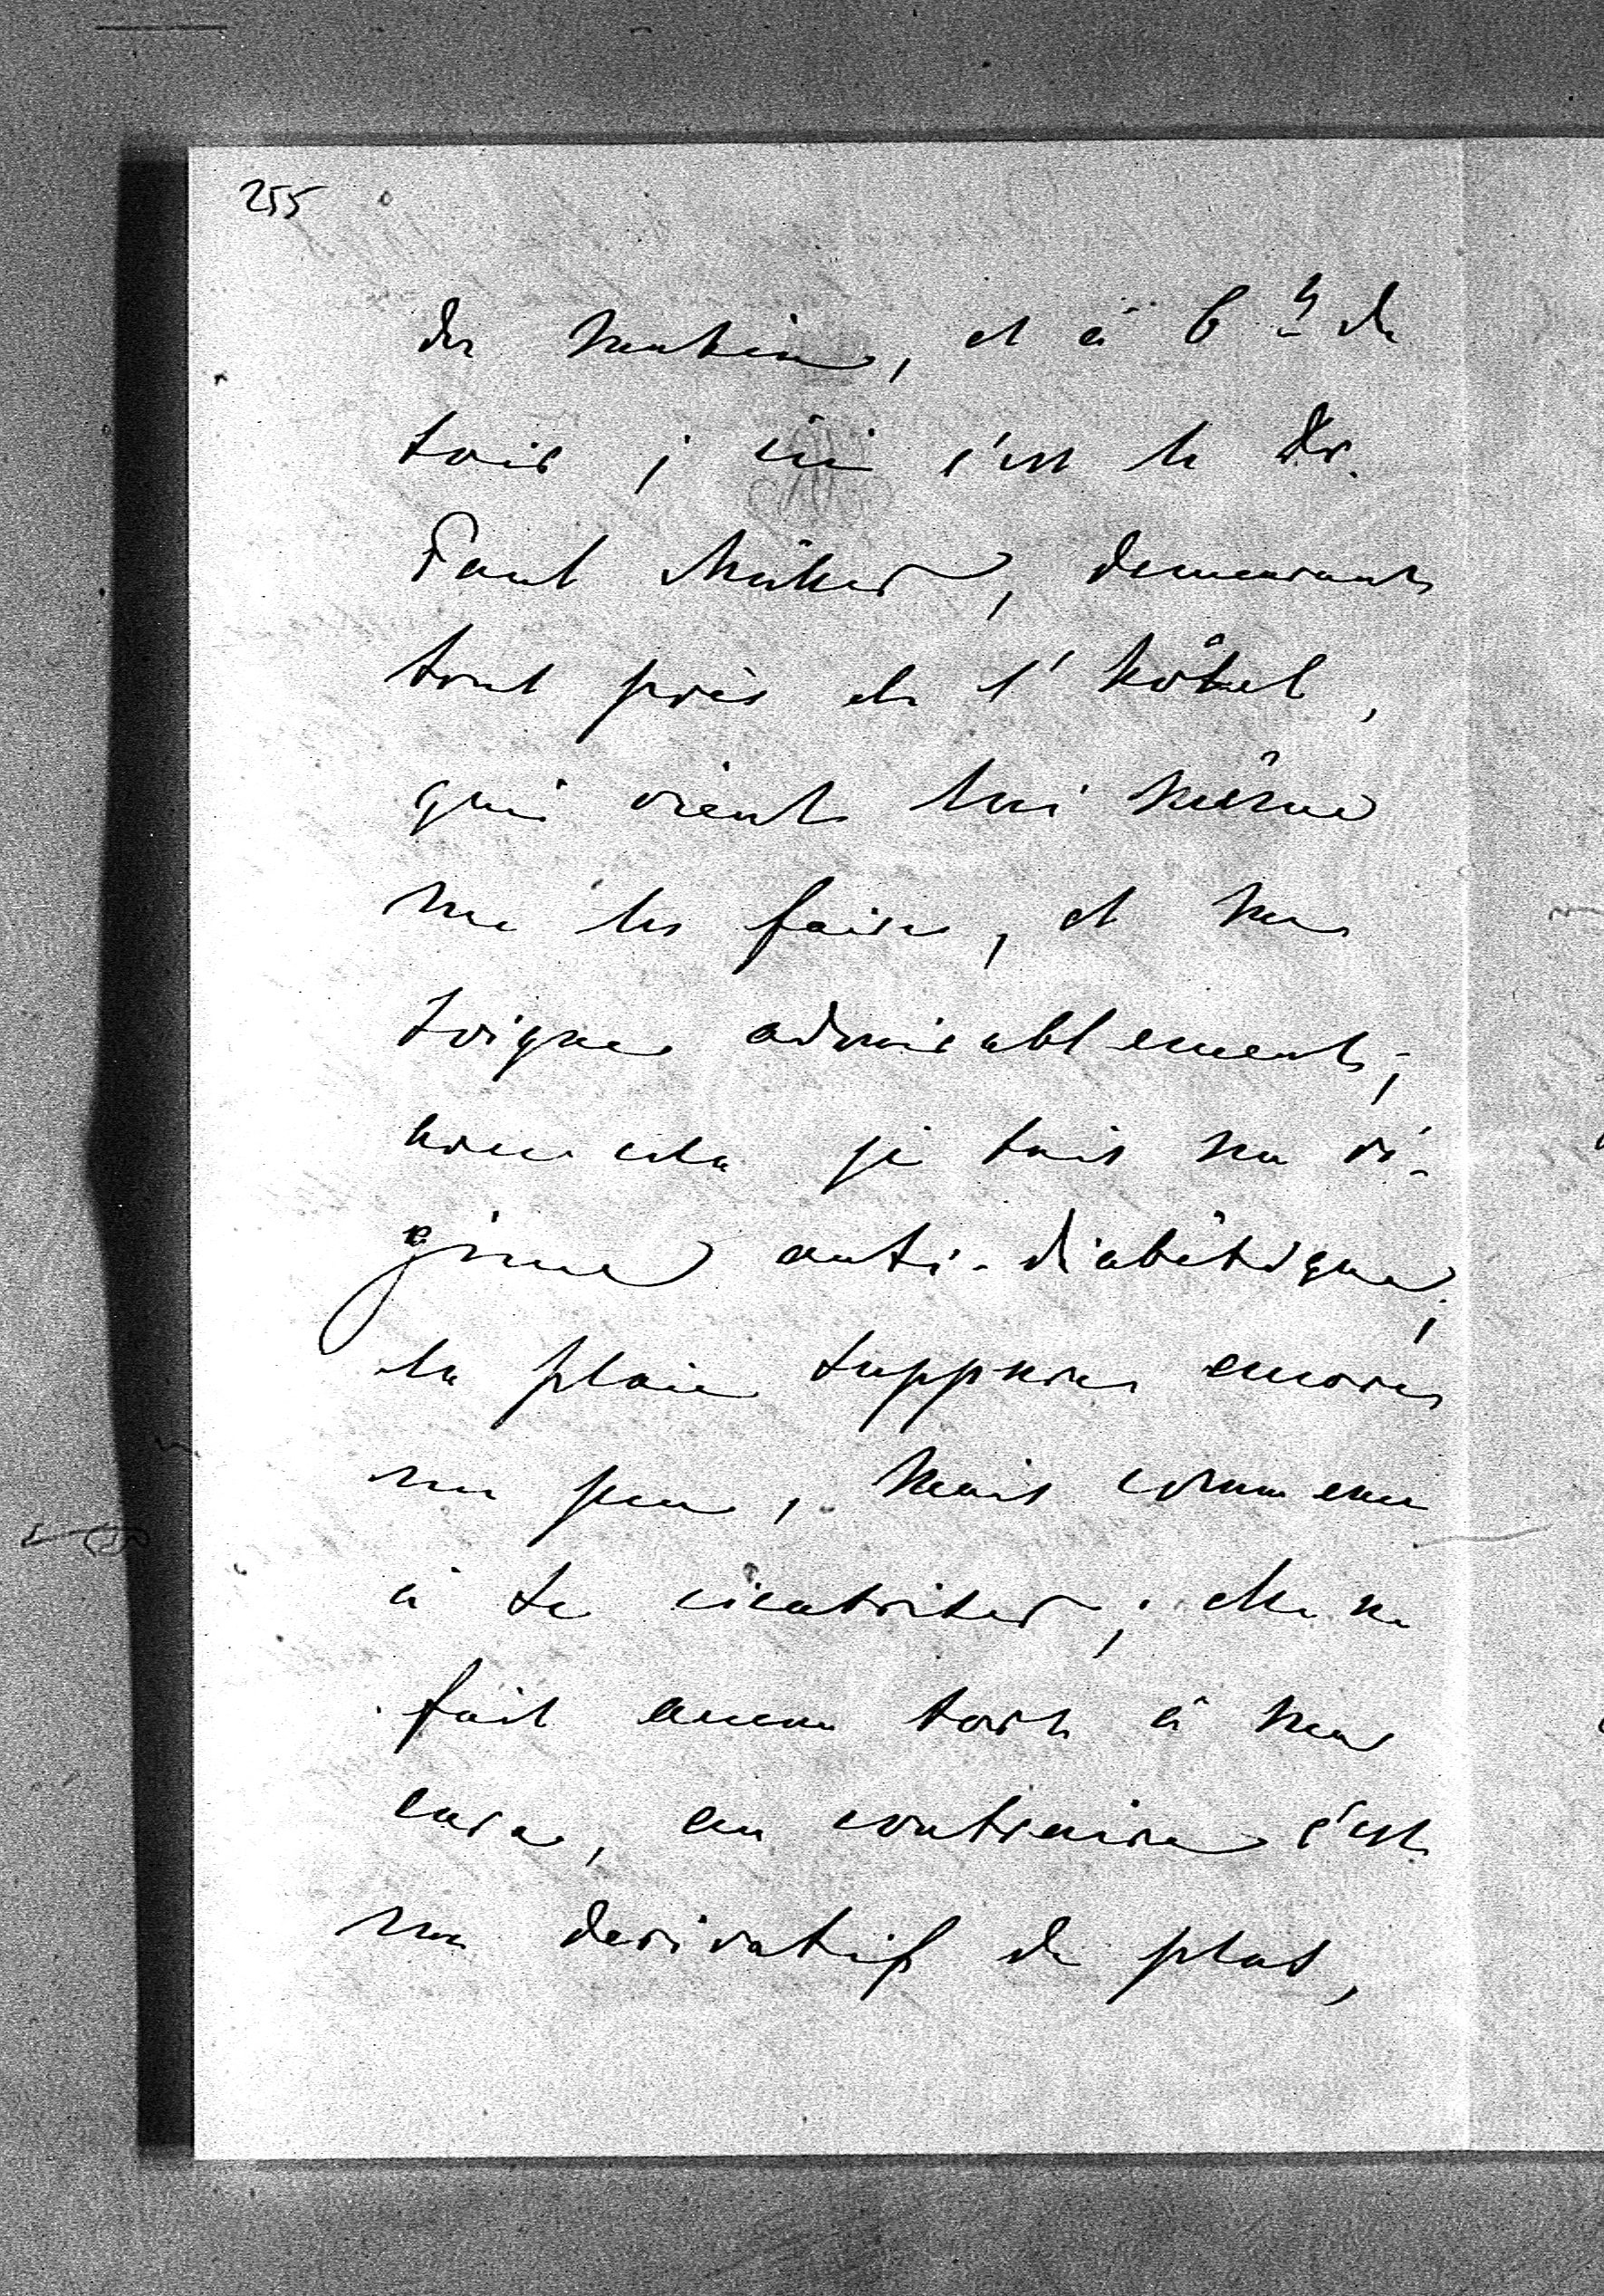 255
du matin, et à 6 h du
soir ; ici c'est le Dr.
Paul Müller, demeurant
tout près de l'hôtel,
qui vient lui même
me les faire, et me
soigne admirablement ;
avec cela je suis un ré-
gime anti-diabétique ;
la plaie suppure encore
un peu, mais commence
à se cicatriser ; elle ne
fait aucun tort à ma
cure, au contraire c'est
un derivatif de plus,